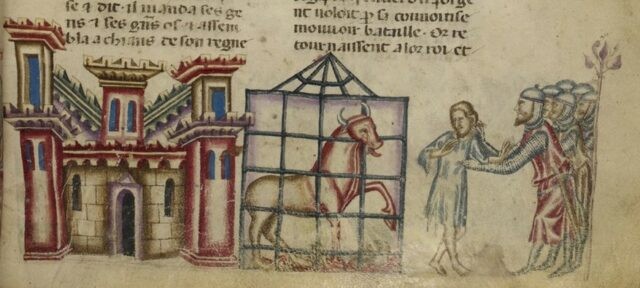 se ⁊ dit. il manda ses ge
ns ⁊ ses gñs ost ⁊ assem
bla a chians de son regne
nt uoloit p si connoitise
mouuoir bataille. Or re
tournaissent a lor roi et